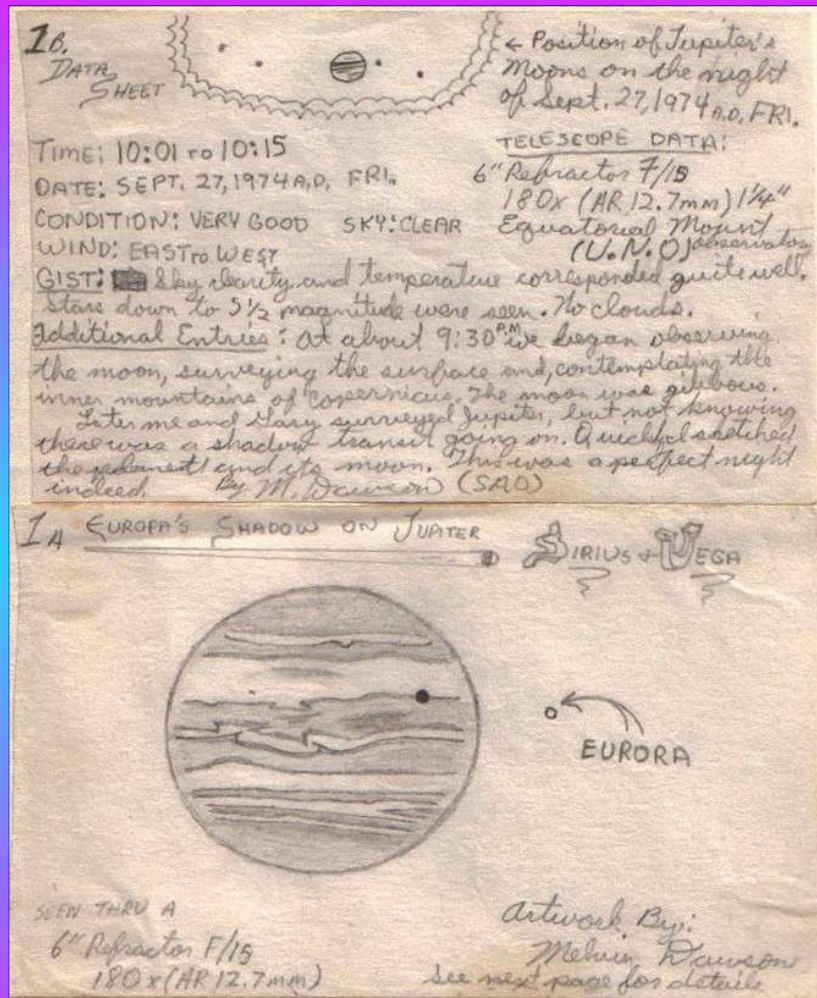 1B.
DATA
SHEET
← Position of Jupiter's
Moons on the night
of Sept. 27, 1974 A.D. FRI.
TIME: 10:01 TO 10:15
DATE: SEPT. 27, 1974 A.D. FRI.
CONDITION: VERY GOOD SKY: CLEAR
WIND: EAST TO WEST
TELESCOPE DATA:
6" Refractor F/15
180x (AR 12.7mm) 1¼"
Equatorial Mount
(U.N.O) observatory
GIST: Sky clarity and temperature corresponded quite well.
Stars down to 5½ magnitude were seen. No clouds.
Additional Entries: At about 9:30 P.M. we began observing
the moon, surveying the surface and, contemplating the
inner mountains of Copernicius. The moon was gibbous.
Later me and Gary surveyed Jupiter, but not knowing
there was a shadow transit going on. Quickly I sketched
the planet and its moon. This was a perfect night
indeed. By M. Dawson (SAO)
1A EUROPA'S SHADOW ON JUPITER
SIRIUS & VEGA
EURORA
SEEN THRU A
6" Refractor F/15
180x (AR 12.7mm)
Artwork By:
Melvin Dawson
See next page for details